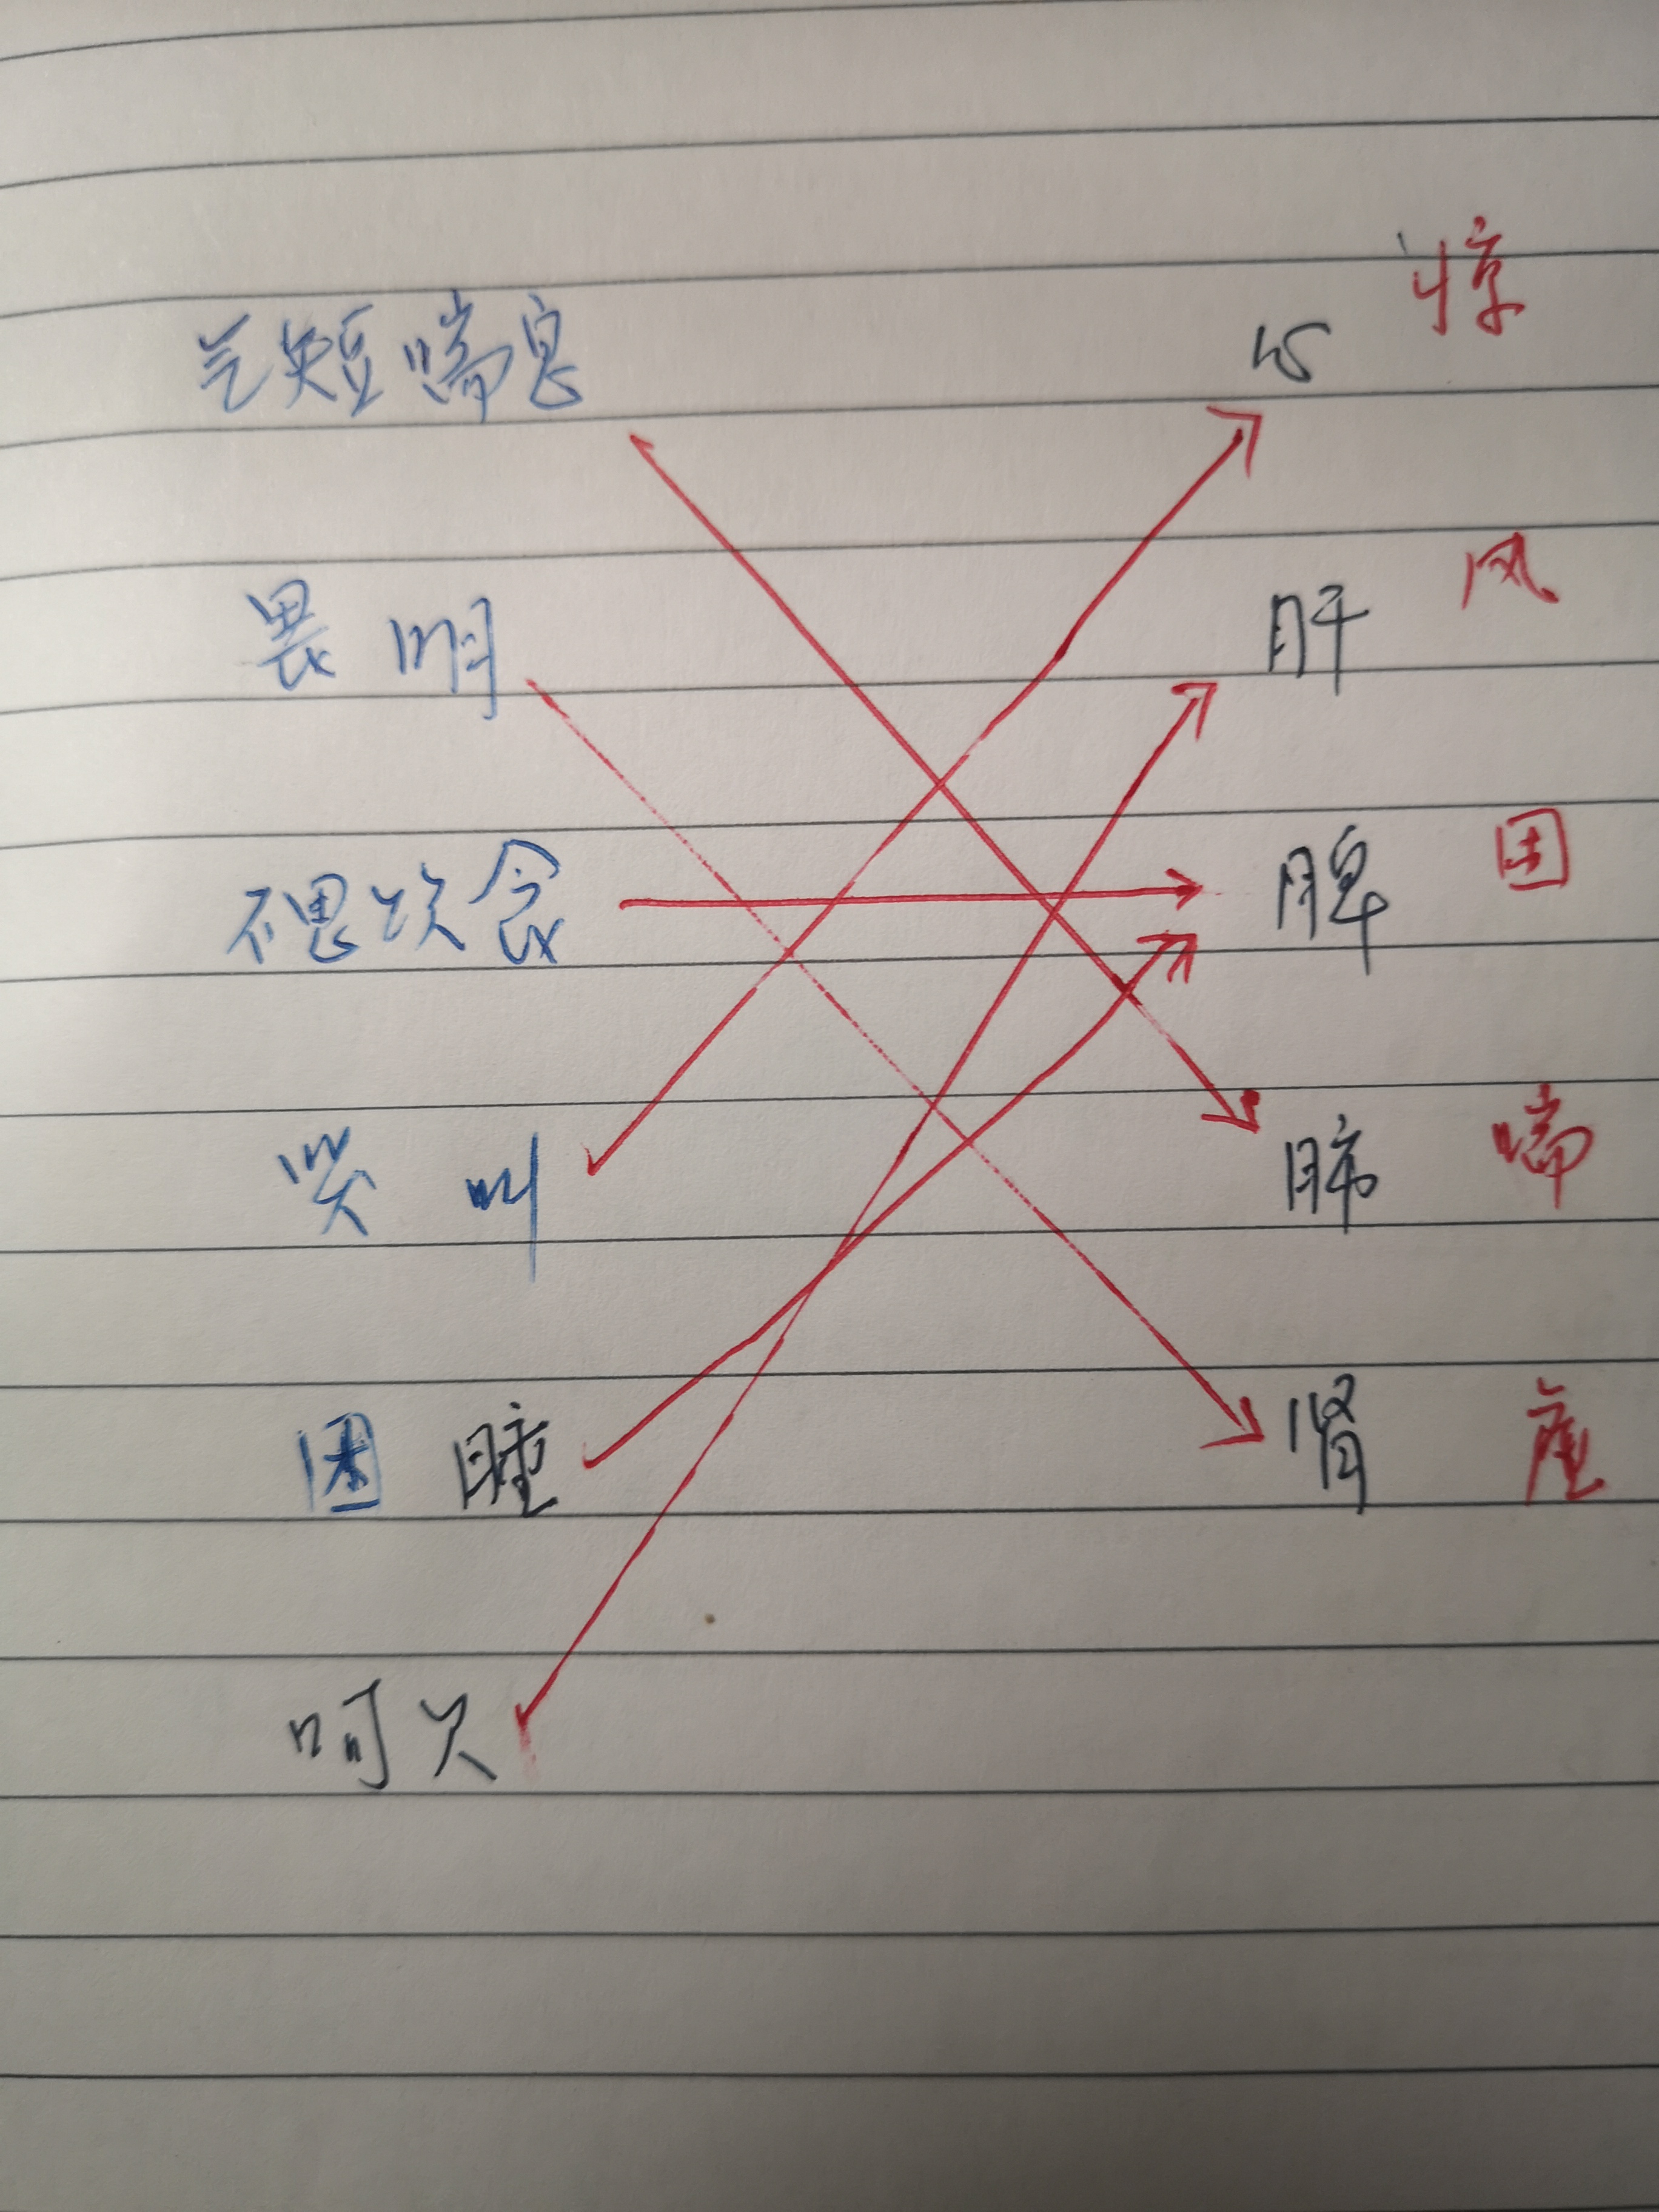 惊
气短喘息 心
风
畏明 肝
不思饮食 脾 困
哭叫 肺 喘
困睡 肾 虚
呵欠